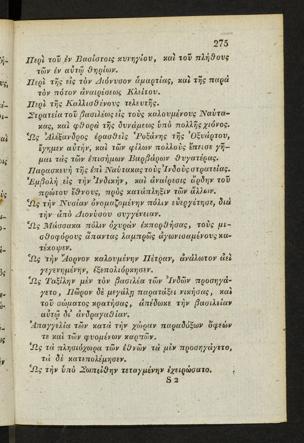 275
Περὶ τοῦ ἐν Βασίστοις κυνηγίου, καὶ τοῦ πλήθους
τῶν ἐν αὐτῷ θηρίων.
Περὶ τῆς εἰς τὸν Διόνυσον ἁμαρτίας, καὶ τῆς παρὰ
τὸν πότον ἀναιρέσεως Κλείτου.
Περὶ τῆς Καλλισθένους τελευτῆς.
Στρατεία τοῦ βασιλέως εἰς τοὺς καλουμένους Ναύτα-
κας, καὶ φθορὰ τῆς δυνάμεως ὑπὸ πολλῆς χιόνος.
Ὡς Ἀλέξανδρος ἐρασθεὶς Ῥωξάνης τῆς Ὀξυάρτου,
ἔγημεν αὐτὴν, καὶ τῶν φίλων πολλοὺς ἔπεισε γῆ-
μαι τὰς τῶν ἐπισήμων Βαρβάρων θυγατέρας.
Παρασκευὴ τῆς ἐπὶ Ναύτακας τοὺς Ἰνδοὺς στρατείας.
Ἐμβολὴ εἰς τὴν Ἰνδικὴν, καὶ ἀναίρεσις ἄρδην τοῦ
πρώτου ἔθνους, πρὸς κατάπληξιν τῶν ἄλλων.
Ὡς τὴν Νυσίαν ὀνομαζομένην πόλιν εὐεργέτησε, διὰ
τὴν ἀπὸ Διονύσου συγγένειαν.
Ὡς Μάσσακα πόλιν ὀχυρὰν ἐκπορθήσας, τοὺς μι-
σθοφόρους ἅπαντας λαμπρῶς ἀγωνισαμένους κα-
τέκοψεν.
Ὡς τὴν Ἄορνον καλουμένην Πέτραν, ἀνάλωτον ἀεὶ
γεγενημένην, ἐξεπολιόρκησεν.
Ὡς Ταξίλην μὲν τὸν βασιλέα τῶν Ἰνδῶν προσηγά-
γετο, Πῶρον δὲ μεγάλῃ παρατάξει νικήσας, καὶ
τοῦ σώματος κρατήσας, ἀπέδωκε τὴν βασιλείαν
αὐτῷ δι' ἀνδραγαθίαν.
Ἀπαγγελία τῶν κατὰ τὴν χώραν παραδόξων ὄφεών
τε καὶ τῶν φυομένων καρπῶν.
Ὡς τὰ πλησιόχωρα τῶν ἐθνῶν τὰ μὲν προσηγάγετο,
τὰ δὲ κατεπολέμησεν.
Ὡς τὴν ὑπὸ Σωπείθην τεταγμένην ἐχειρώσατο.
S 2